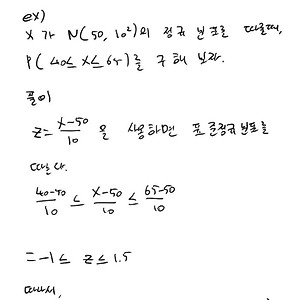 ex)
X 가 N(50, 10²)의 정규 분포를 따를때,
P( 40≤ X ≤ 65)를 구해 보라.
풀이
Z= (X-50)/10 을 사용하면 표준정규분포를
따른다.
(40-50)/10 ≤ (X-50)/10 ≤ (65-50)/10
= -1 ≤ Z ≤ 1.5
따라서,